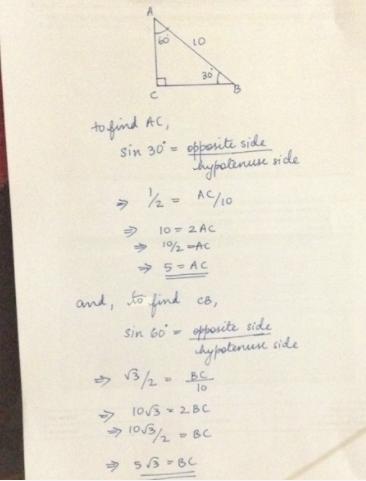 A
60° 10
30°
C B
to find AC,
sin 30° = opposite side
hypotenuse side
⇒ 1/2 = AC/10
⇒ 10 = 2AC
⇒ 10/2 = AC
⇒ 5 = AC
and, to find CB,
sin 60° = opposite side
hypotenuse side
⇒ √3/2 = BC
10
⇒ 10√3 = 2BC
⇒ 10√3/2 = BC
⇒ 5√3 = BC